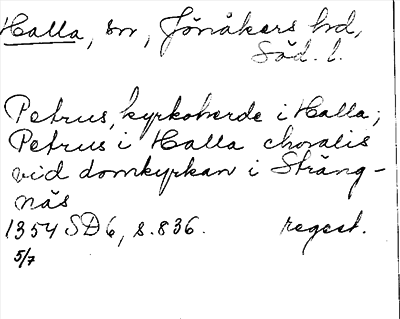 Halla, sn, Jönåkers hd,
Söd. l.
Petrus, kyrkoherde i Halla;
Petrus i Halla choralis
vid domkyrkan i Sträng-
näs
1354 SD6, s. 836. regest.
5/7